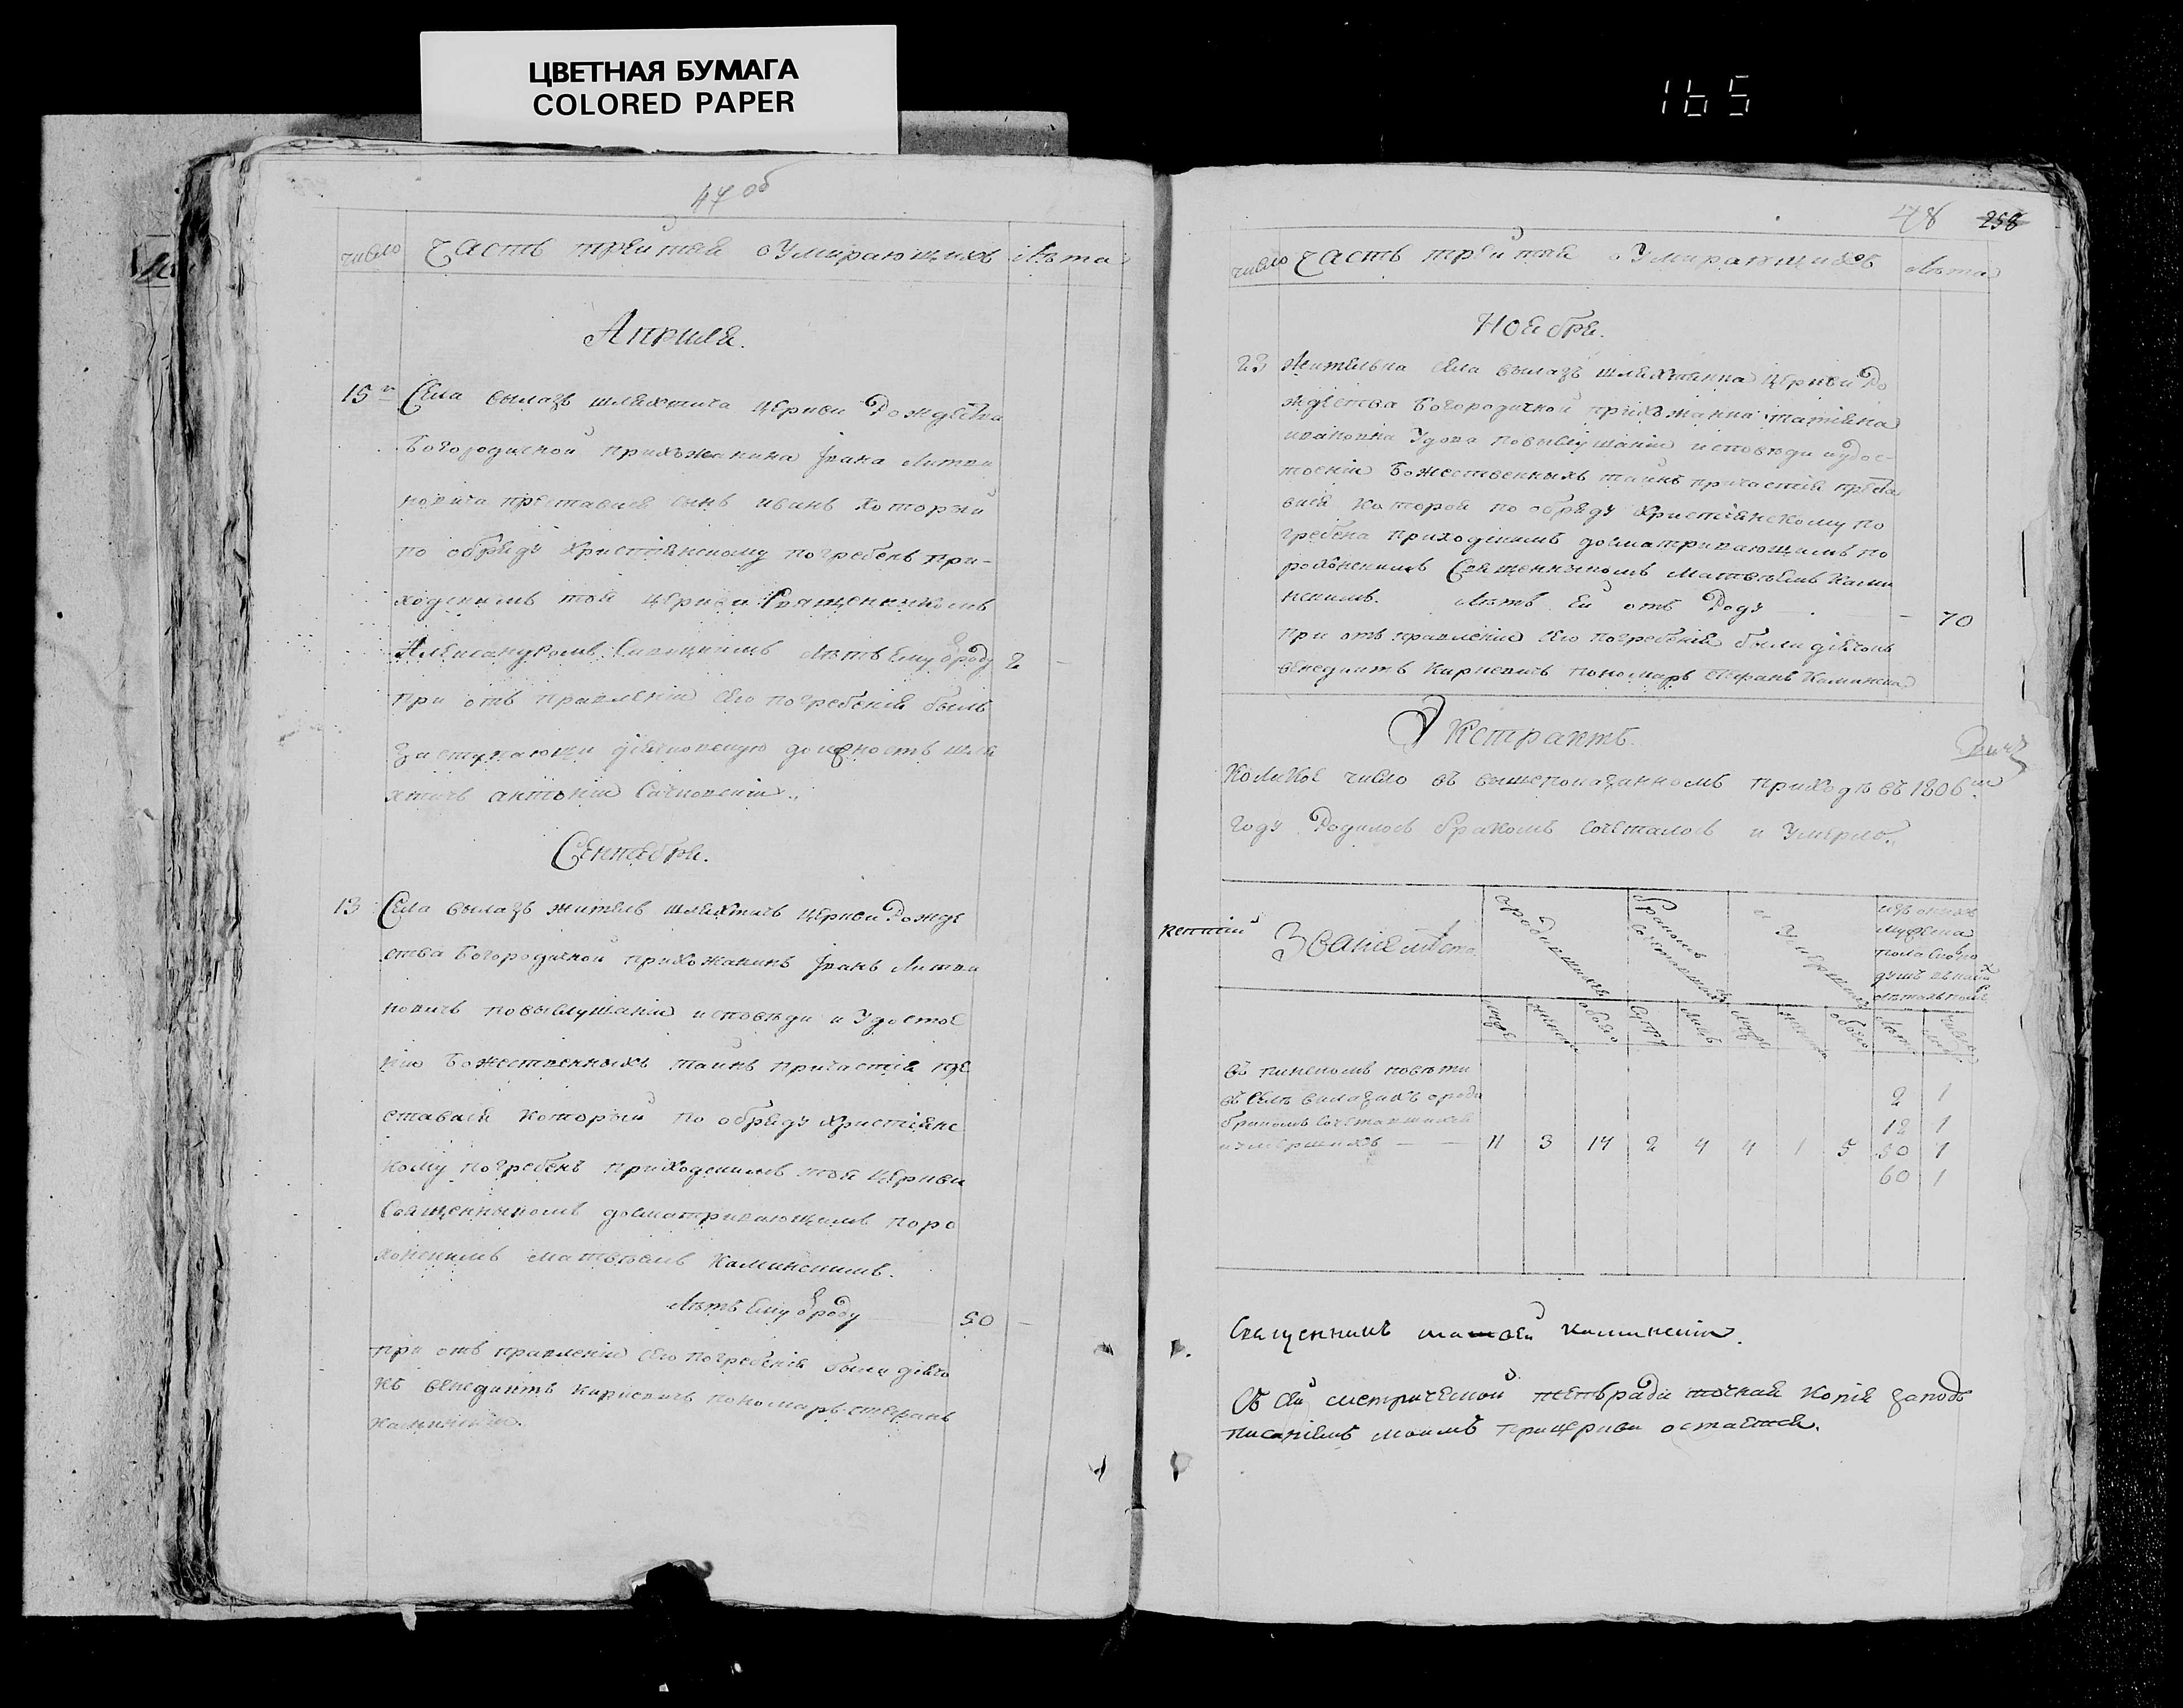 ЦВЕТНАЯ БУМАГА
COLORED PAPER
165
47 об
число Часть третая о Умирающихъ лѣта
Априля.
15 Села вылазъ шляхтича церкви Рождества
Богородичной прихожанина Ивана Литви
новича преставися сынъ иванъ который
по обряду христіянскому погребенъ при-
ходскимъ той церкви Священникомъ
Александромъ лѣтъ Ему ѿроду 2
при отъ правленіи сего погребенія былъ
заступающи дьячковскую должность шля
хтичъ антоній
Сентября.
13 Села вылазъ житель шляхтичъ церкви Рожде
ства Богородичной прихожанинъ Іванъ Литви
новичъ повыслушаніи исповѣди и Удостое
нію Божественныхъ таинъ причастія пре
ставися который по обряду христіянс
кому погребенъ приходскимъ той церкви
Священникомъ досматривающимъ поро
хонскимъ матвѣемъ каминскимъ.
лѣтъ Ему ѿроду 50
при отъ правленіи сего погребенія были дьячо
къ венедиктъ киркевичъ пономаръ стефанъ
каминскій.
48 258
число Часть третая о Умирающихъ лѣта
Ноября.
23 жителька села вылазъ шляхтянка церкви Ро
ждества Богородичной прихожанка татіяна
ивановна Удова повыслушаніи исповѣди иудос-
тоеніи Божественныхъ таинъ причастія преста
вися которая по обряду христіянскому по
гребена приходскимъ досматривающимъ по
рохонскимъ Священникомъ матвѣемъ ками
нскимъ. лѣтъ Ей отъ Роду 70
при отъ правленіи сего погребенія были дьячокъ
венедиктъ киркевичъ пономаръ стефанъ каминскій
Экстрактъ.
Коликое число въ вышепоказанномъ приходѣ въ 1806м
году Родилось бракомъ сочеталось и Умерло.
Званіе мѣста
ѡродившихъ
бракомъ сочетавшихъ
и Умершихъ
изъ онихъ
мужска
пола
душъ
въ пинскомъ повѣти
въ селѣ вилазахъ ѡроди
бракомъ сочетавшихся
иумершихъ 11 3 14 2 4 4 1 5
2 1
12 1
50 1
60 1
Священникъ матвей каминскій.
Съ сей метрической тетьради точная копія заподъ
писаніемъ моимъ прицеркви остается.